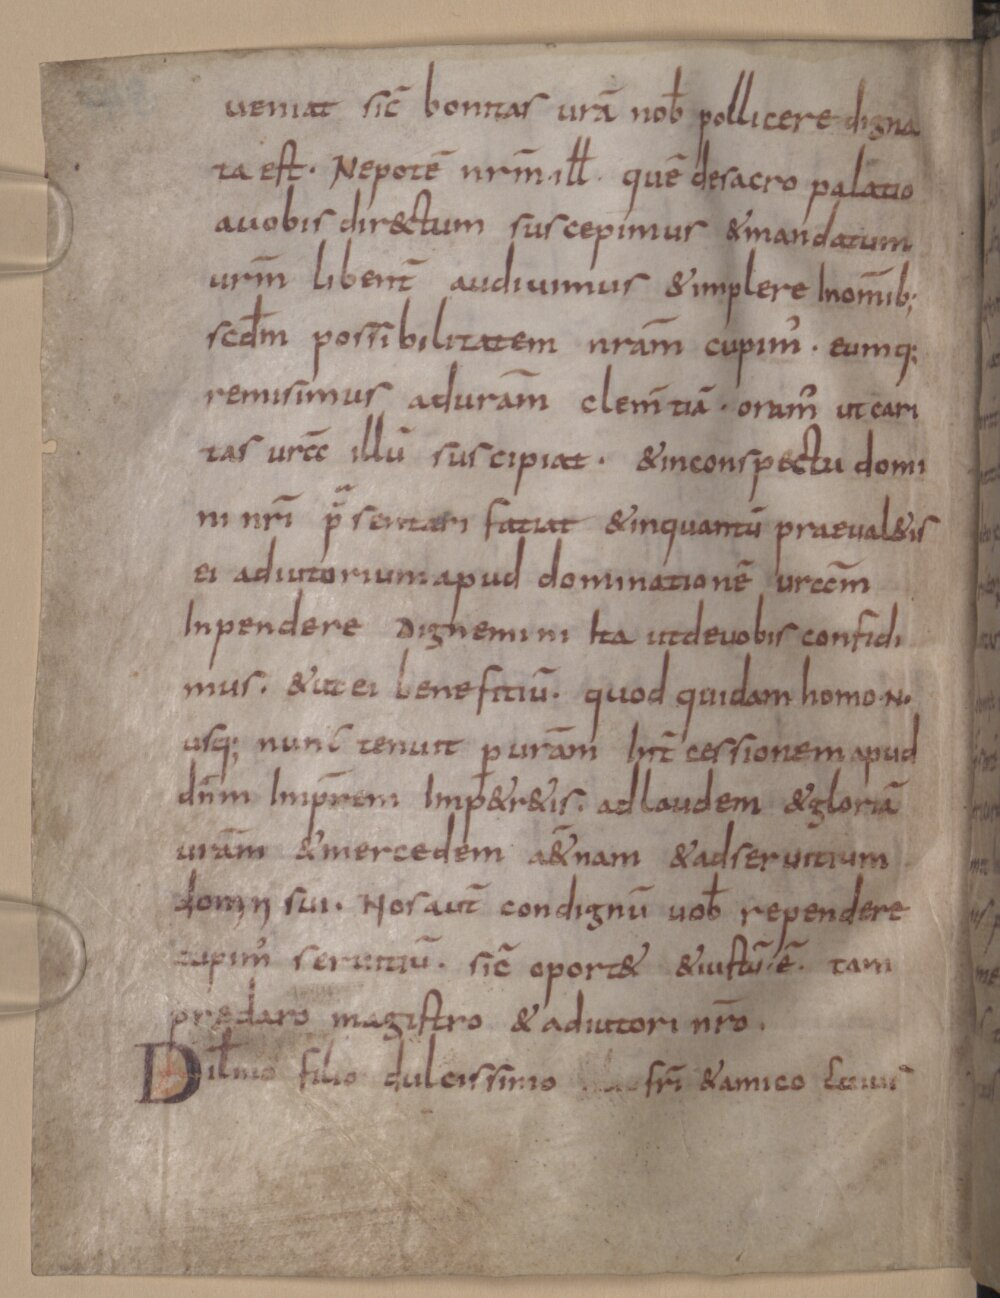 ueniat sic̄ bonitas urā nob̄ pollicere digna
ta est. Nepotē nrm̄ . ill̄ . quē desacro palatio
auobis dir&ctum suscepimus &mandatum
urm̄ libent̄ audiuimus &implere Inom̄ib;
scd̄m possibilitatem nram̄ cupim᾿. eumq;
remisimus aduram̄ clem̄tiā . oram᾿ ut cari
tas urcc̄ illū suscipiat . &inconspectu domi
ni nrī p̄sentari fatiat &inquantū praeual&is
ei adiutorium apud dominationē urccm̄
Inpendere Dignemini Ita utdeuobis confidi
mus . &ut ei benefitiū . quod quidam homo .N.
usq; nunc tenuit p uram̄ Int̄cessionem apud
dn̄m Imp̄rem Imp&r&is . adlaudem &gloriā
uram̄ &mercedem a&̄nam &adseruitium
domni sui . Nos aut̄ condignū uob̄ rependere
cupim᾿ seruitiū . sic̄ oport& &iustū . ē . tam
preclaro magistro &adiutori nr̄o .
Dil̄mo filio dulcissimo frī &amico